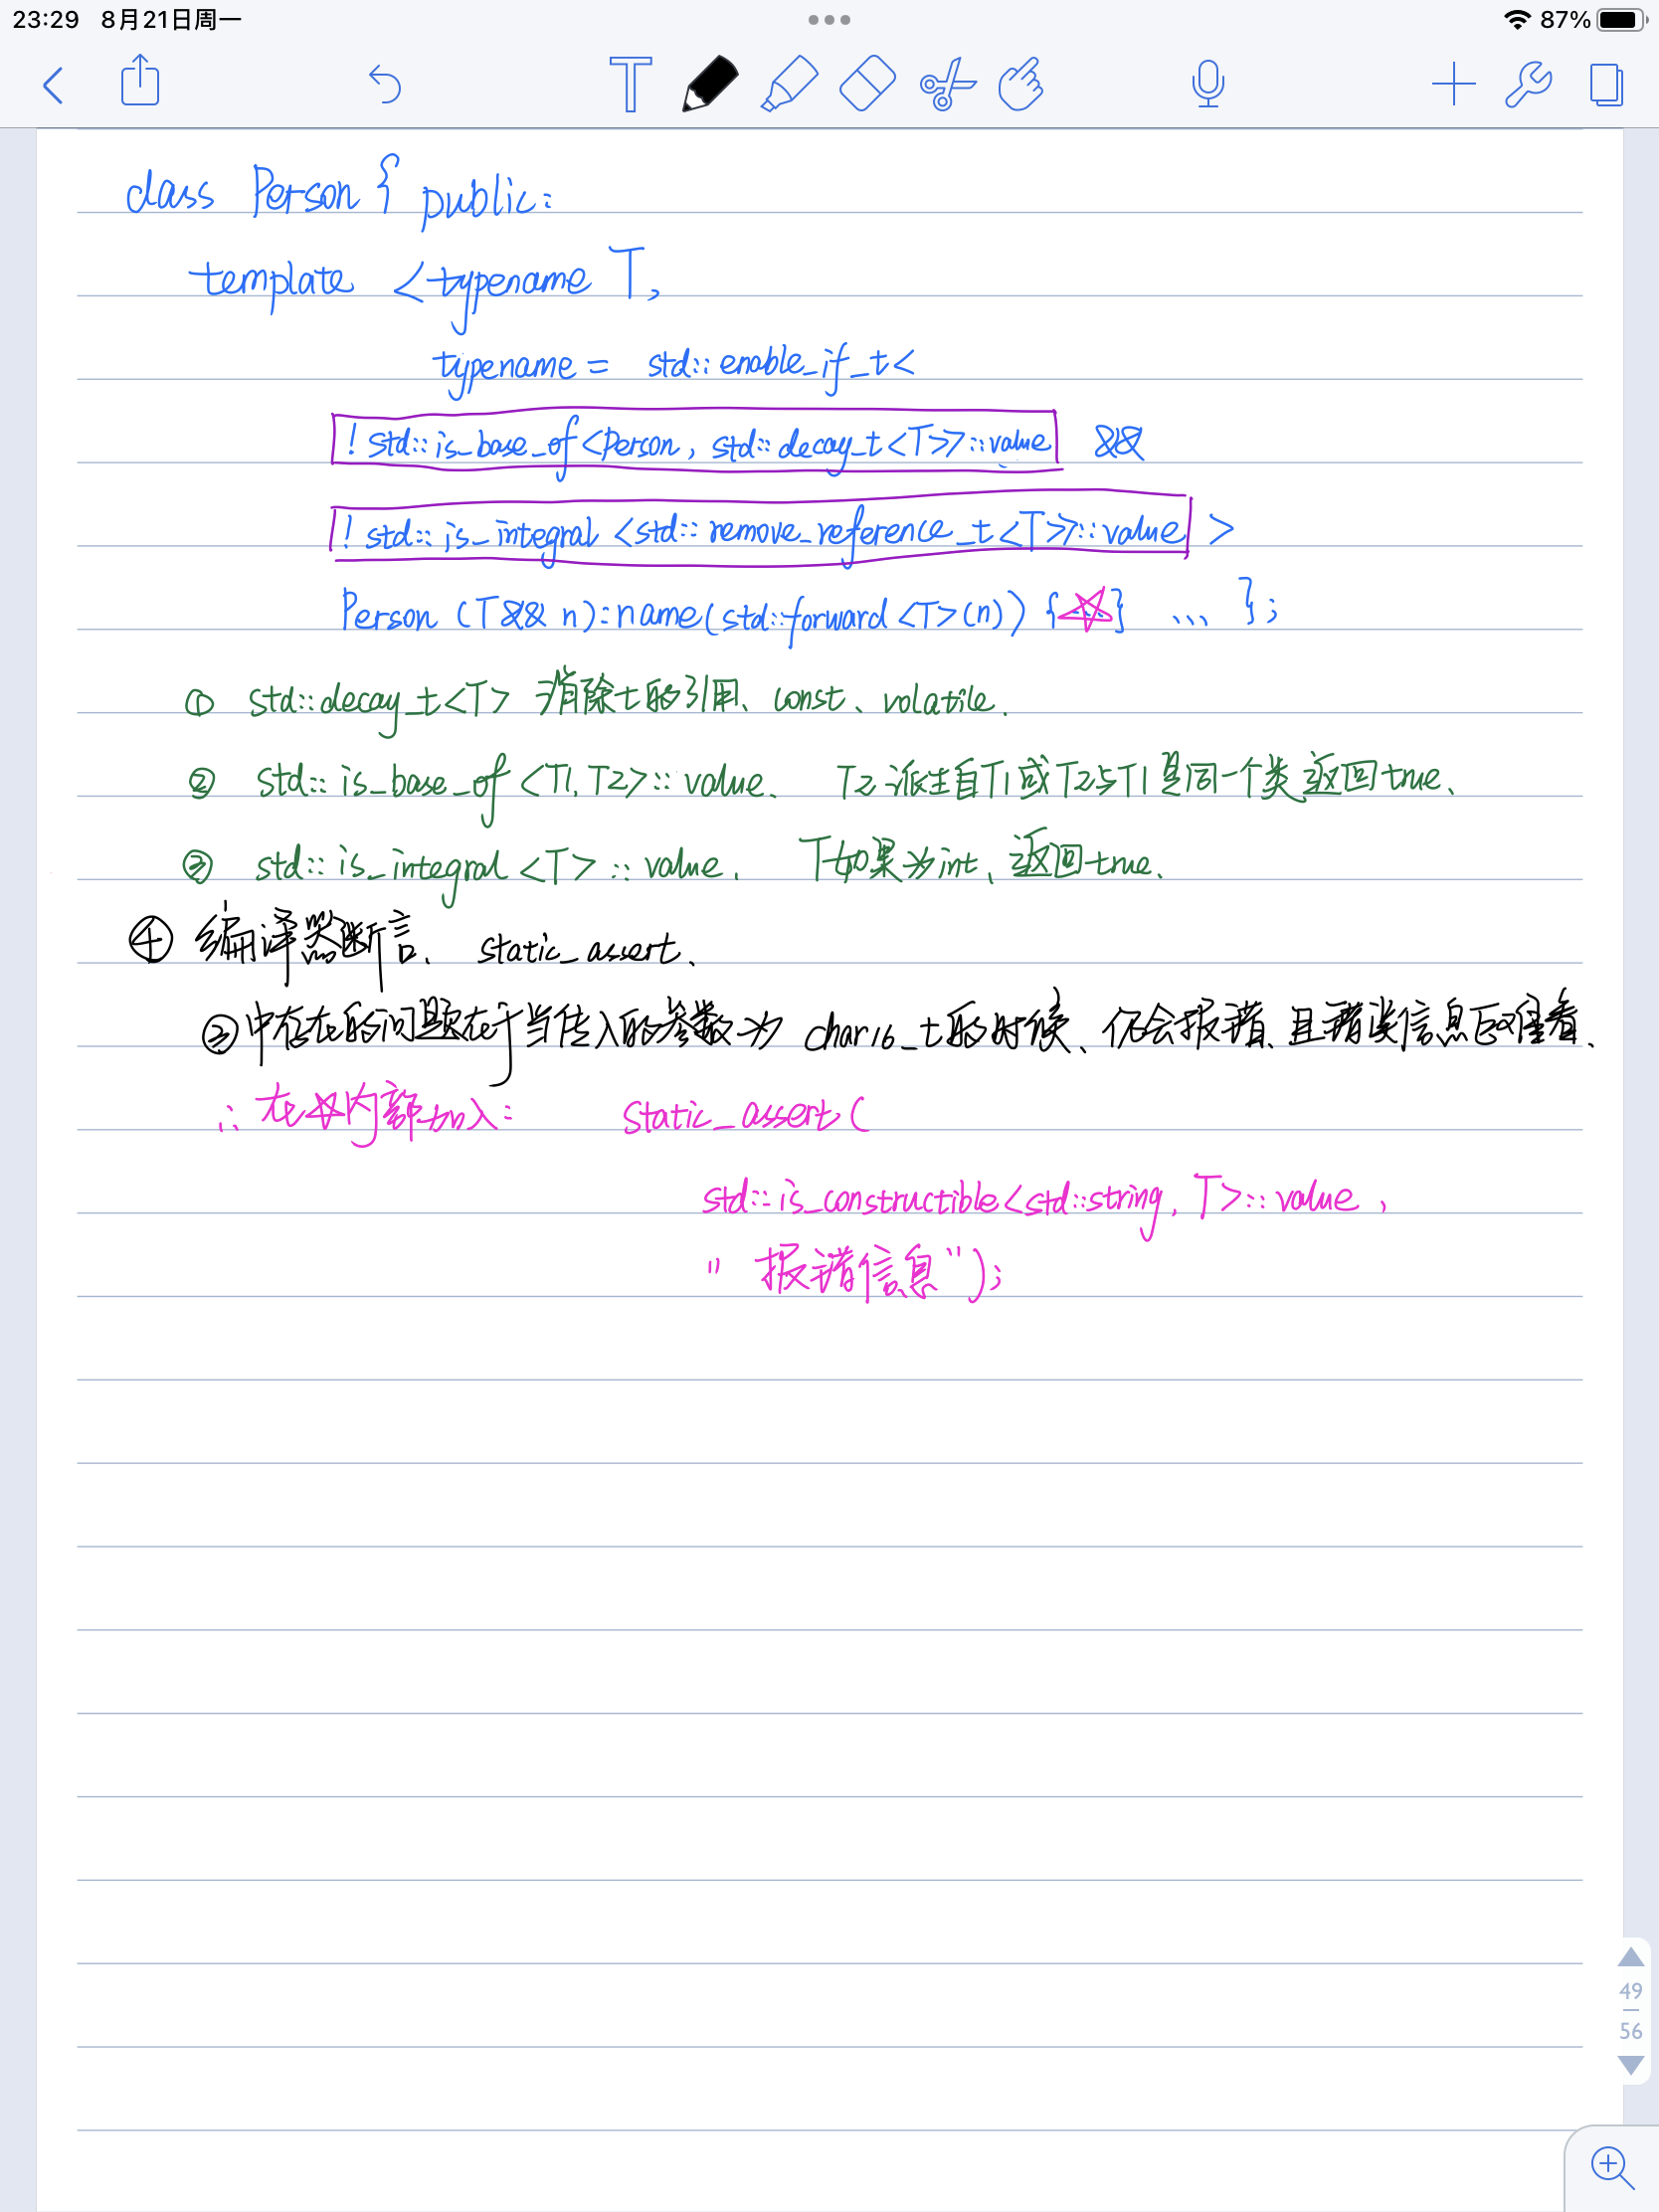 23:29 8月21日周一
87%
class Person { public:
template <typename T,
typename = std::enable_if_t<
! std::is_base_of<Person, std::decay_t<T>>::value &&
! std::is_integral <std::remove_reference_t<T>>::value >
Person (T&& n):name(std::forward<T>(n)) {☆} ... };
① std::decay_t<T> 消除t的引用、const、volatile.
② std::is_base_of <T1, T2>::value、 T2派生自T1或T2与T1是同一个类返回true、
③ std::is_integral <T> :: value. T如果为int、返回true.
④ 编译器断言. static_assert、
③中存在的问题在于当传入的参数为 char16_t的时候、仍会报错、且错误信息反又难看.
∴ 在☆内部加入: static_assert(
std::is_constructible<std::string, T>::value ,
" 报错信息");
49
56